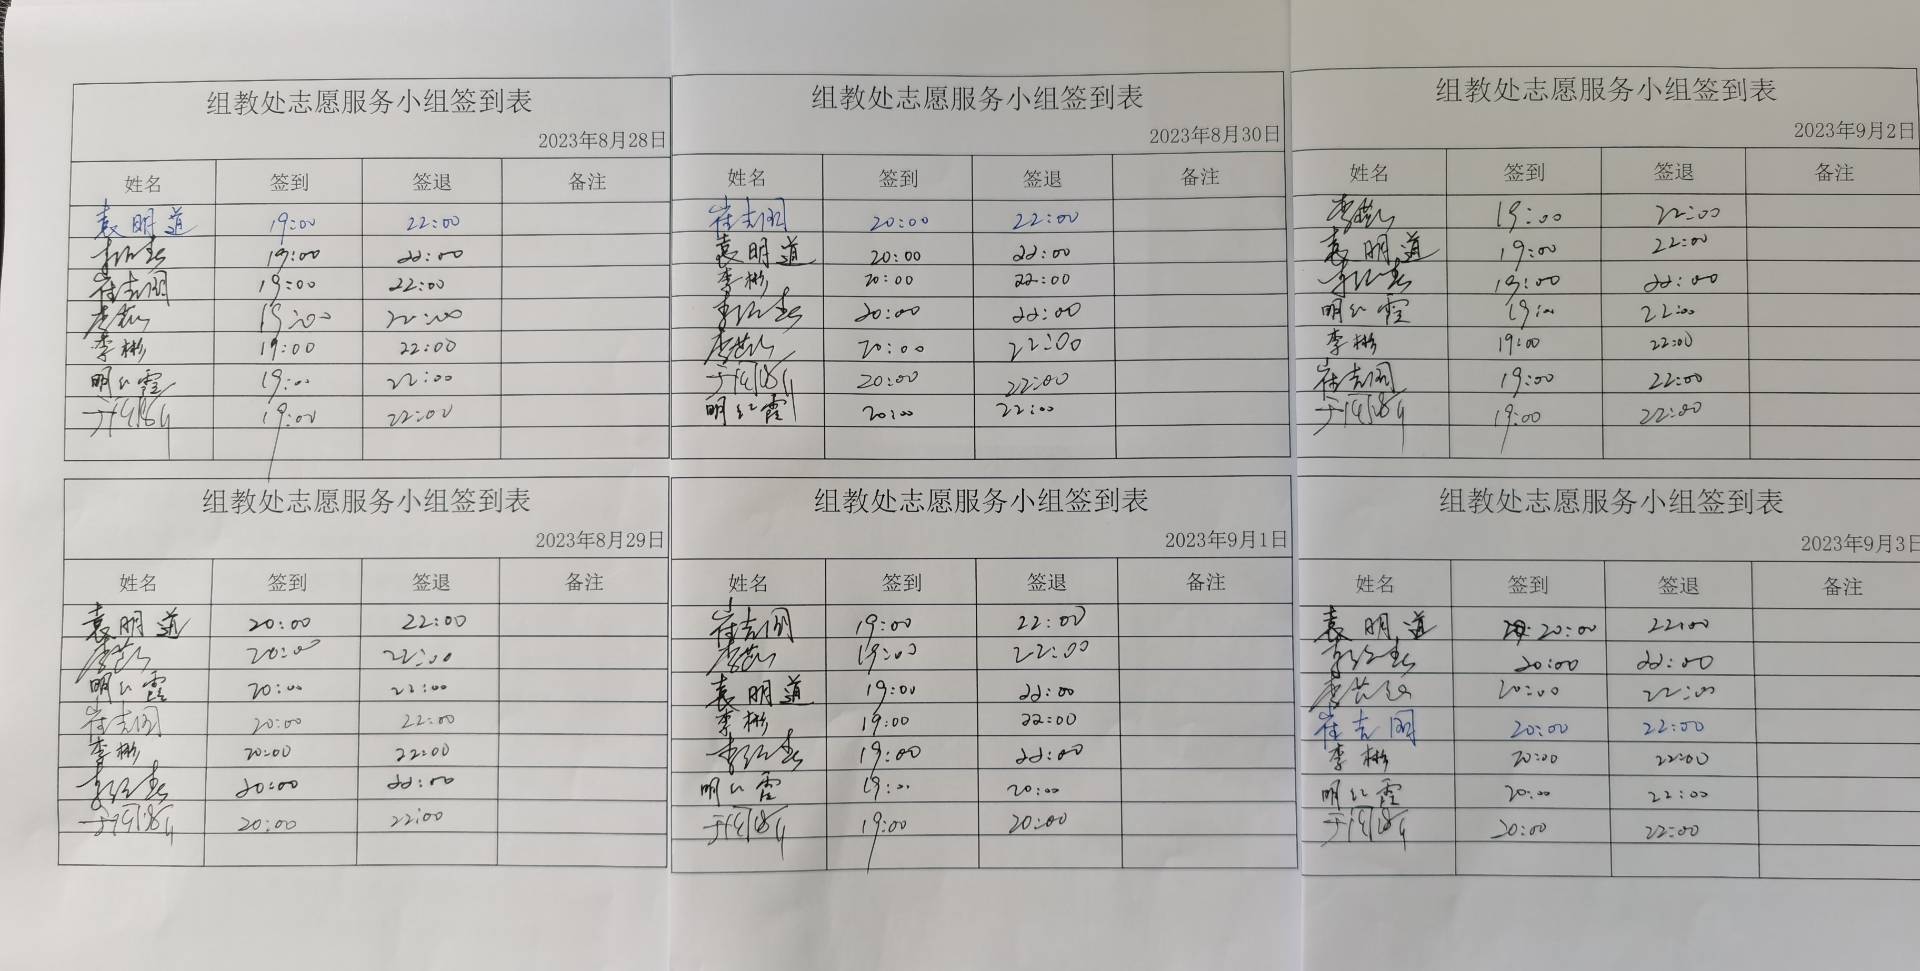 组教处志愿服务小组签到表
2023年8月28日
姓名 签到 签退 备注
袁明道 19:00 22:00
19:00 22:00
崔志刚 19:00 22:00
19:00 22:00
李彬 19:00 22:00
明红霞 19:00 22:00
19:00 22:00
组教处志愿服务小组签到表
2023年8月30日
姓名 签到 签退 备注
崔志刚 20:00 22:00
袁明道 20:00 22:00
李彬 20:00 22:00
20:00 22:00
20:00 22:00
20:00 22:00
明红霞 20:00 22:00
组教处志愿服务小组签到表
2023年9月2日
姓名 签到 签退 备注
19:00 22:00
袁明道 19:00 22:00
19:00 22:00
明红霞 19:00 22:00
李彬 19:00 22:00
崔志刚 19:00 22:00
19:00 22:00
组教处志愿服务小组签到表
2023年8月29日
姓名 签到 签退 备注
袁明道 20:00 22:00
20:00 22:00
明红霞 20:00 22:00
崔志刚 20:00 22:00
李彬 20:00 22:00
20:00 22:00
20:00 22:00
组教处志愿服务小组签到表
2023年9月1日
姓名 签到 签退 备注
崔志刚 19:00 22:00
19:00 22:00
袁明道 19:00 22:00
李彬 19:00 22:00
19:00 22:00
明红霞 19:00 20:00
19:00 20:00
组教处志愿服务小组签到表
2023年9月3日
姓名 签到 签退 备注
袁明道 20:00 22:00
20:00 22:00
20:00 22:00
崔志刚 20:00 22:00
李彬 20:00 22:00
明红霞 20:00 22:00
20:00 22:00